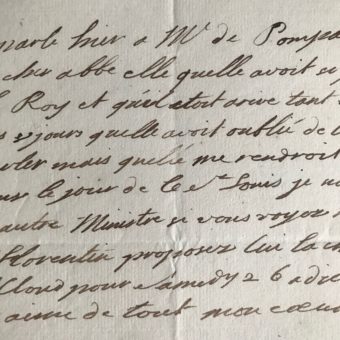 parlé hier a Me de Pompa
cher abbé elle quelle avoit
Roy et quil etoit arivé tant
jours quelle avoit oublié de
parler mais quelle me rendroit
le jour de la St Louis je
autre Ministre si vous voyez
florentin proposez lui la
Cloud pour samedy 26 a di
aime de tout mon coeur